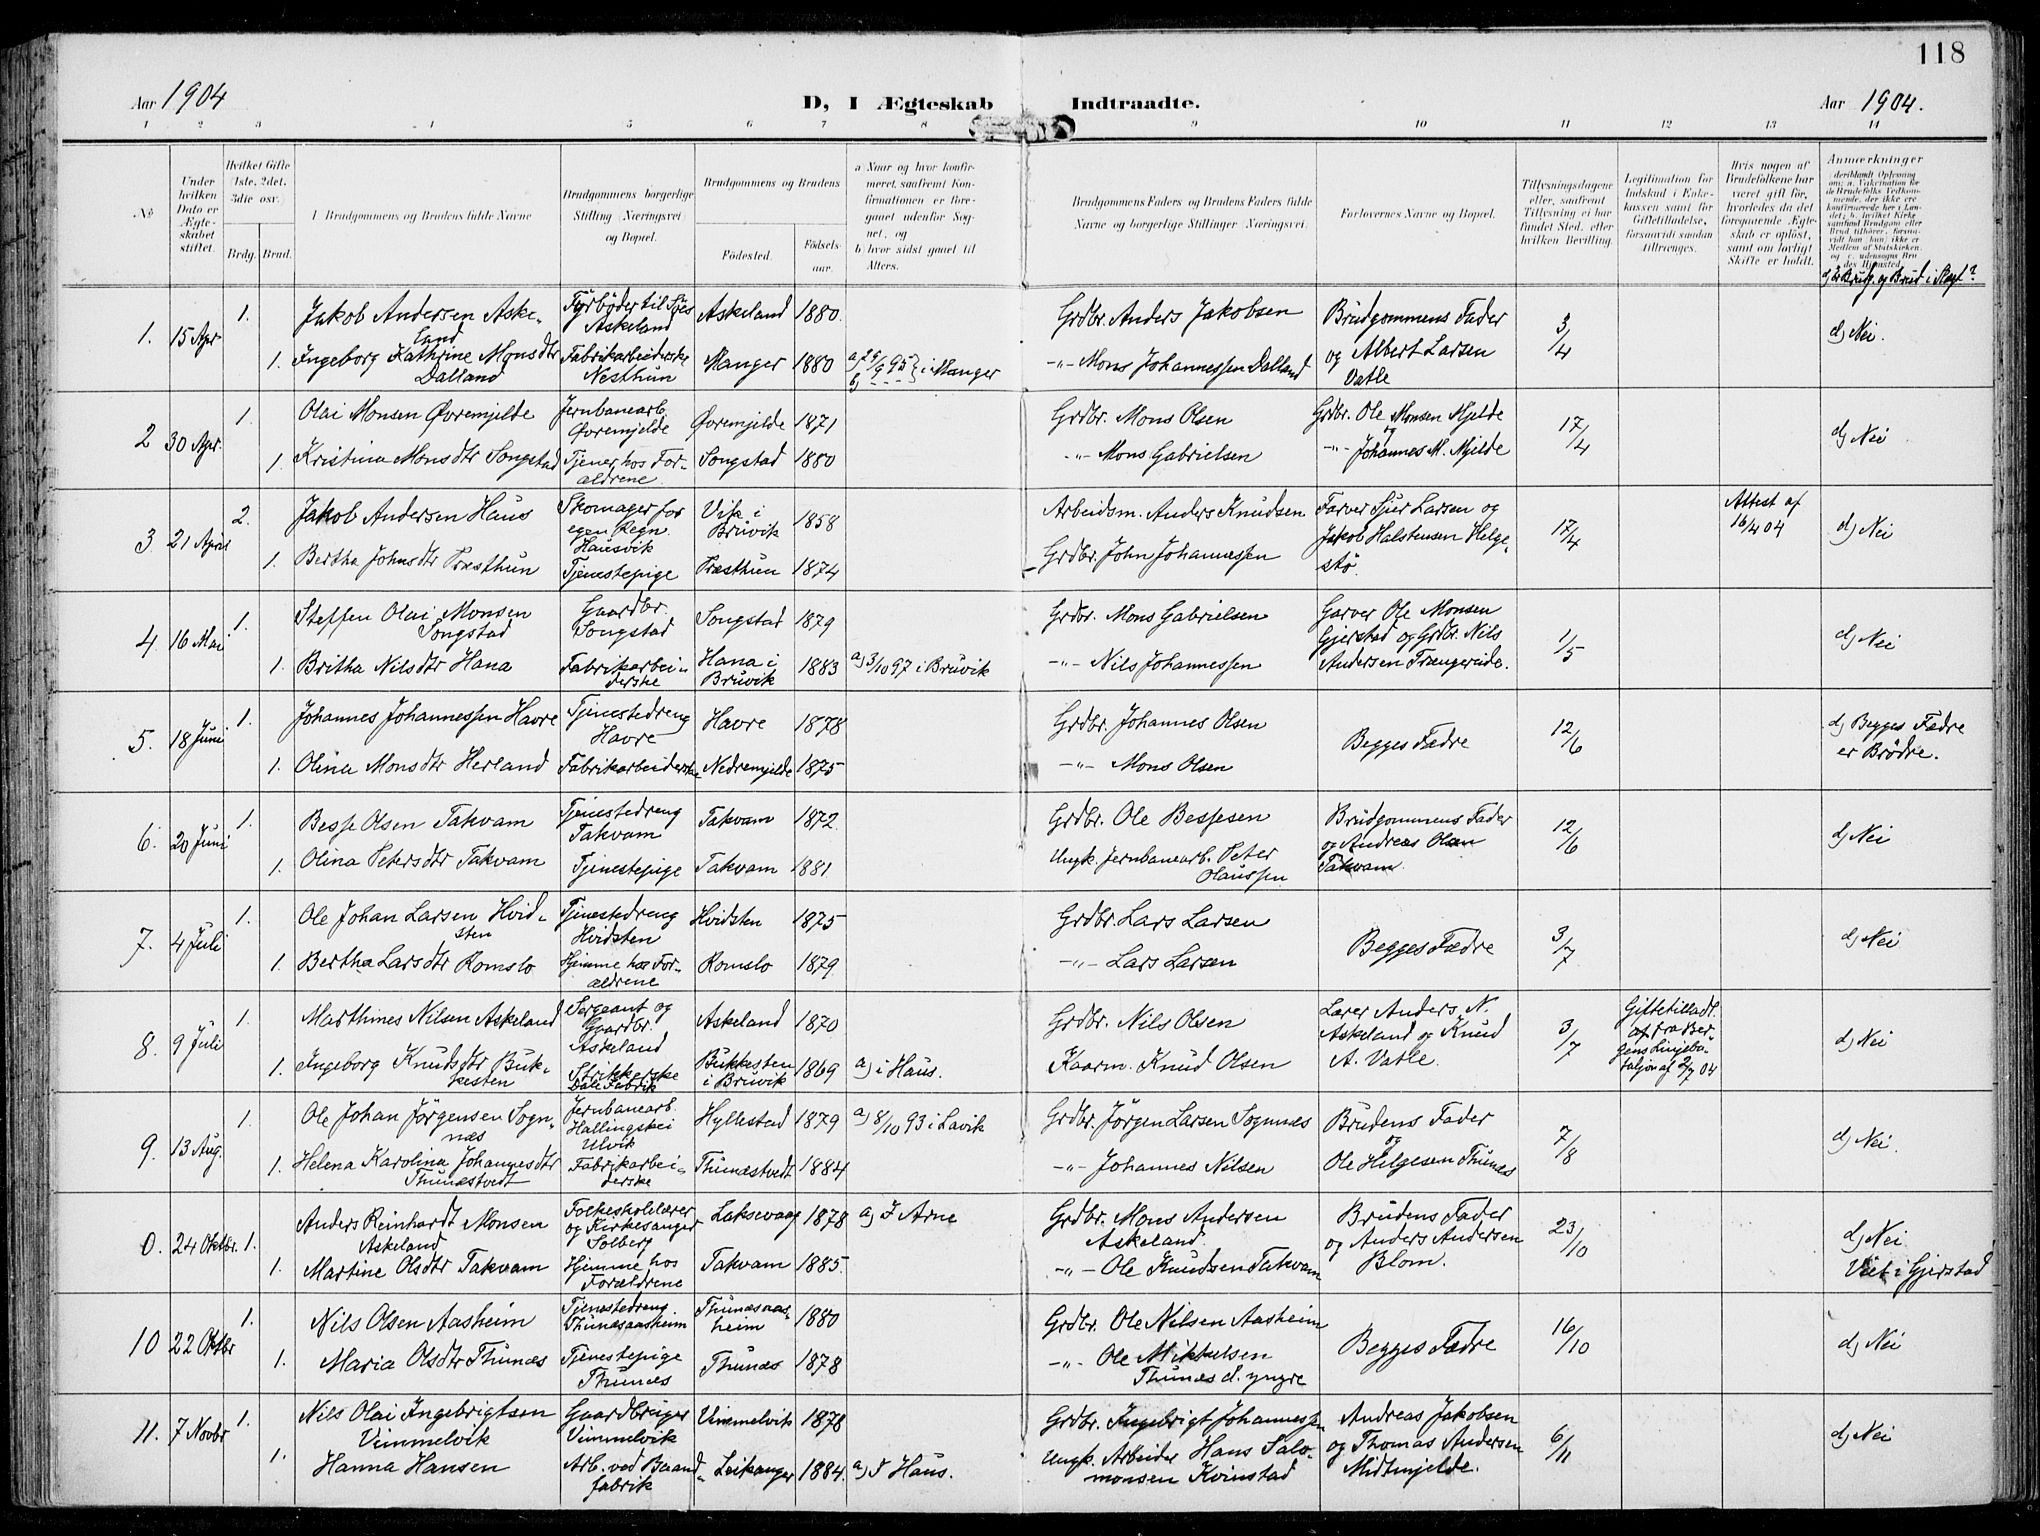 118
Aar 1904
D, I Ægteskab Indtraadte.
Aar 1904.
1 2 3 4 5 6 7 8 9 10 11 12 13 14
No
Under hvilken Dato er Ægteskabet stiftet.
Hvilket Gifte (1ste, 2det, 3die osv.)
Brdg. Brud.
Brudgommens og Brudens fulde Navne
Brudgommens borgerlige Stilling (Næringsvei) og Bopæl.
Brudgommens og Brudens
Fødested.
Fødselsaar.
a) Naar og hvor konfirmeret, saafremt Konfirmationen er foregaaet udenfor Sognet, og
b) hvor sidst gaaet til Alters.
Brudgommens Faders og Brudens Faders fulde Navne og borgerlige Stillinger (Næringsvei).
Forlovernes Navne og Bopæl.
Tillysningsdagene eller, saafremt Tillysning ei har fundet Sted, efter hvilken Bevilling.
Legitimation for Indskud i Enkekassen samt for Giftetilladelse, forsaavidt saadan tiltrænges.
Hvis nogen af Brudefolkene har været gift før, hvorledes da det foregaaende Ægteskab er opløst, samt om lovligt Skifte er holdt.
Anmærkninger
d) Er Brudg. og Brud i Slægt?
1. 15 Apr 1. Jakob Andersen Askeland Fyrbøder til Søes Askeland Askeland 1880. Grdbr. Anders Jakobsen Brudgommens Fader 3/4 d) Nei.
1. Ingeborg Kathrine Monsdtr Dalland Fabrikarbeiderske Nesthun Manger 1880 a) 29/9 95 } i Manger b) -"- Mons Johannessen Dalland og Albert Larsen Vatle
2 30 Apr. 1. Olai Monsen Øvremjelde Jernbanearb. Øvremjelde Øvremjelde 1871 Grdbr. Mons Olsen Grdbr. Ole Monsen Mjelde 17/4 d) Nei
1. Kristina Monsdtr Songstad Tjener hos Forældrene Songstad 1880 -"- Mons Gabrielsen og -"- Johannes M. Mjelde
3 21 April 2. Jakob Andersen Haus Skomager for egen Regn. Hausvik Vik i Bruvik 1858 Arbeidsm. Anders Knudsen Farver Sjur Larsen og 17/4 Attest af 16/4 04 d) Nei
1. Bertha Johnsdtr Træsthun Tjenestepige Præsthun 1874 Grdbr. John Johannessen Jakob Halstensen Helgestø.
4 16 Mai 1. Steffen Olai Monsen Songstad Gaardbr. Songstad Songstad 1879 Grdbr. Mons Gabrielsen Garver Ole Monsen 1/5 d) Nei
1. Britha Nilsdtr Hana Fabrikarbeiderske Hana i Bruvik 1883 a) 3/10 97 i Bruvik -"- Nils Johannessen Gjerstad og Grdbr. Nils Andersen Trængereide.
5. 18 Juni 1. Johannes Johannessen Havre Tjenestedreng Havre Havre 1878 Grdbr. Johannes Olsen Begges Fædre 12/6 d) Begges Fædre er Brödre.
1. Olina Monsdtr Herland Fabrikarbeiderske Nedremjelde 1875 -"- Mons Olsen
6. 20 Juni 1. Besse Olsen Takvam Tjenestedreng Takvam Takvam 1872. Grdbr. Ole Bessesen Brudgommens Fader 12/6 d) Nei
1. Olina Petersdtr Takvam Tjenestepige Takvam 1881. Ungk. Jernbanearb. Peter Olaussen og Andreas Olsen Takvam
7. 4 Juli 1. Ole Johan Larsen Hvidsten Tjenestedreng Hvidsten Hvidsten 1875 Grdbr. Lars Larsen Begges Fædre 3/7 d) Nei
1. Bertha Larsdtr Romslo Hjemme hos Forældrene Romslo 1879 -"- Lars Larsen
8. 9 Juli 1. Marthines Nilsen Askeland Sergeant og Gaardbr. Askeland Askeland 1870 Grdbr. Nils Olsen Lærer Anders N. Askeland og Knud A. Vatle. 3/7 Giftetilladl. fra Bergens Linjebataljon af 2/7 04 d) Nei
1. Ingeborg Knudsdtr Bukkesten Strikkerske Dale Fabrik Bukkesten i Bruvik 1869 a) i Haus. Kaarm. Knud Olsen
9. 13 Aug. 1. Ole Johan Jörgensen Sognnæs Jernbanearb. Hallingskei Ulvik Hyllestad 1879 a) 8/10 93 i Lavik Grdbr. Jörgen Larsen Sognnæs Brudens Fader 7/8 d) Nei.
1. Helena Karolina Johannesdtr Thunæstvedt Fabrikarbeiderske Thunæstvedt 1884 -"- Johannes Nilsen og Ole Helgesen Thunes
0. 24 Oktbr. 1. Anders Reinhardt Monsen Askeland Folkeskolelærer og Kirkesanger Solberg Laksevaag 1878 a) I Arne Grdbr. Mons Andersen Askeland Brudens Fader 23/10 d) Nei
1. Martine Olsdtr Takvam Hjemme hos Forældrene Takvam 1885. -"- Ole Knudsen Takvam og Anders Andersen Blom. Viet i Gjerstad
10 22 Oktbr 1. Nils Olsen Aasheim Tjenestedreng Thunæsaasheim Thunæsaasheim 1880 Grdbr. Ole Nilsen Aasheim Begges Fædre 16/10 d) Nei
1. Maria Olsdtr Thunæs Tjenestepige Thunæs Thunæs 1878 -"- Ole Mikkelsen Thunæs d. yngre
11. 7 Novbr 1. Nils Olai Ingebrigtsen Vimmelvik Gaardbruger Vimmelvik Vimmelvik 1878 Grdbr. Ingebrigt Johannessen Andreas Jakobsen 6/11 d) Nei
1. Hanna Hansen Arb. ved Baandfabrik Leikanger 1884. a) I Haus. Ungk. Arbeider Hans Salomonsen Kvinstad og Thomas Andersen Midtmjelde.